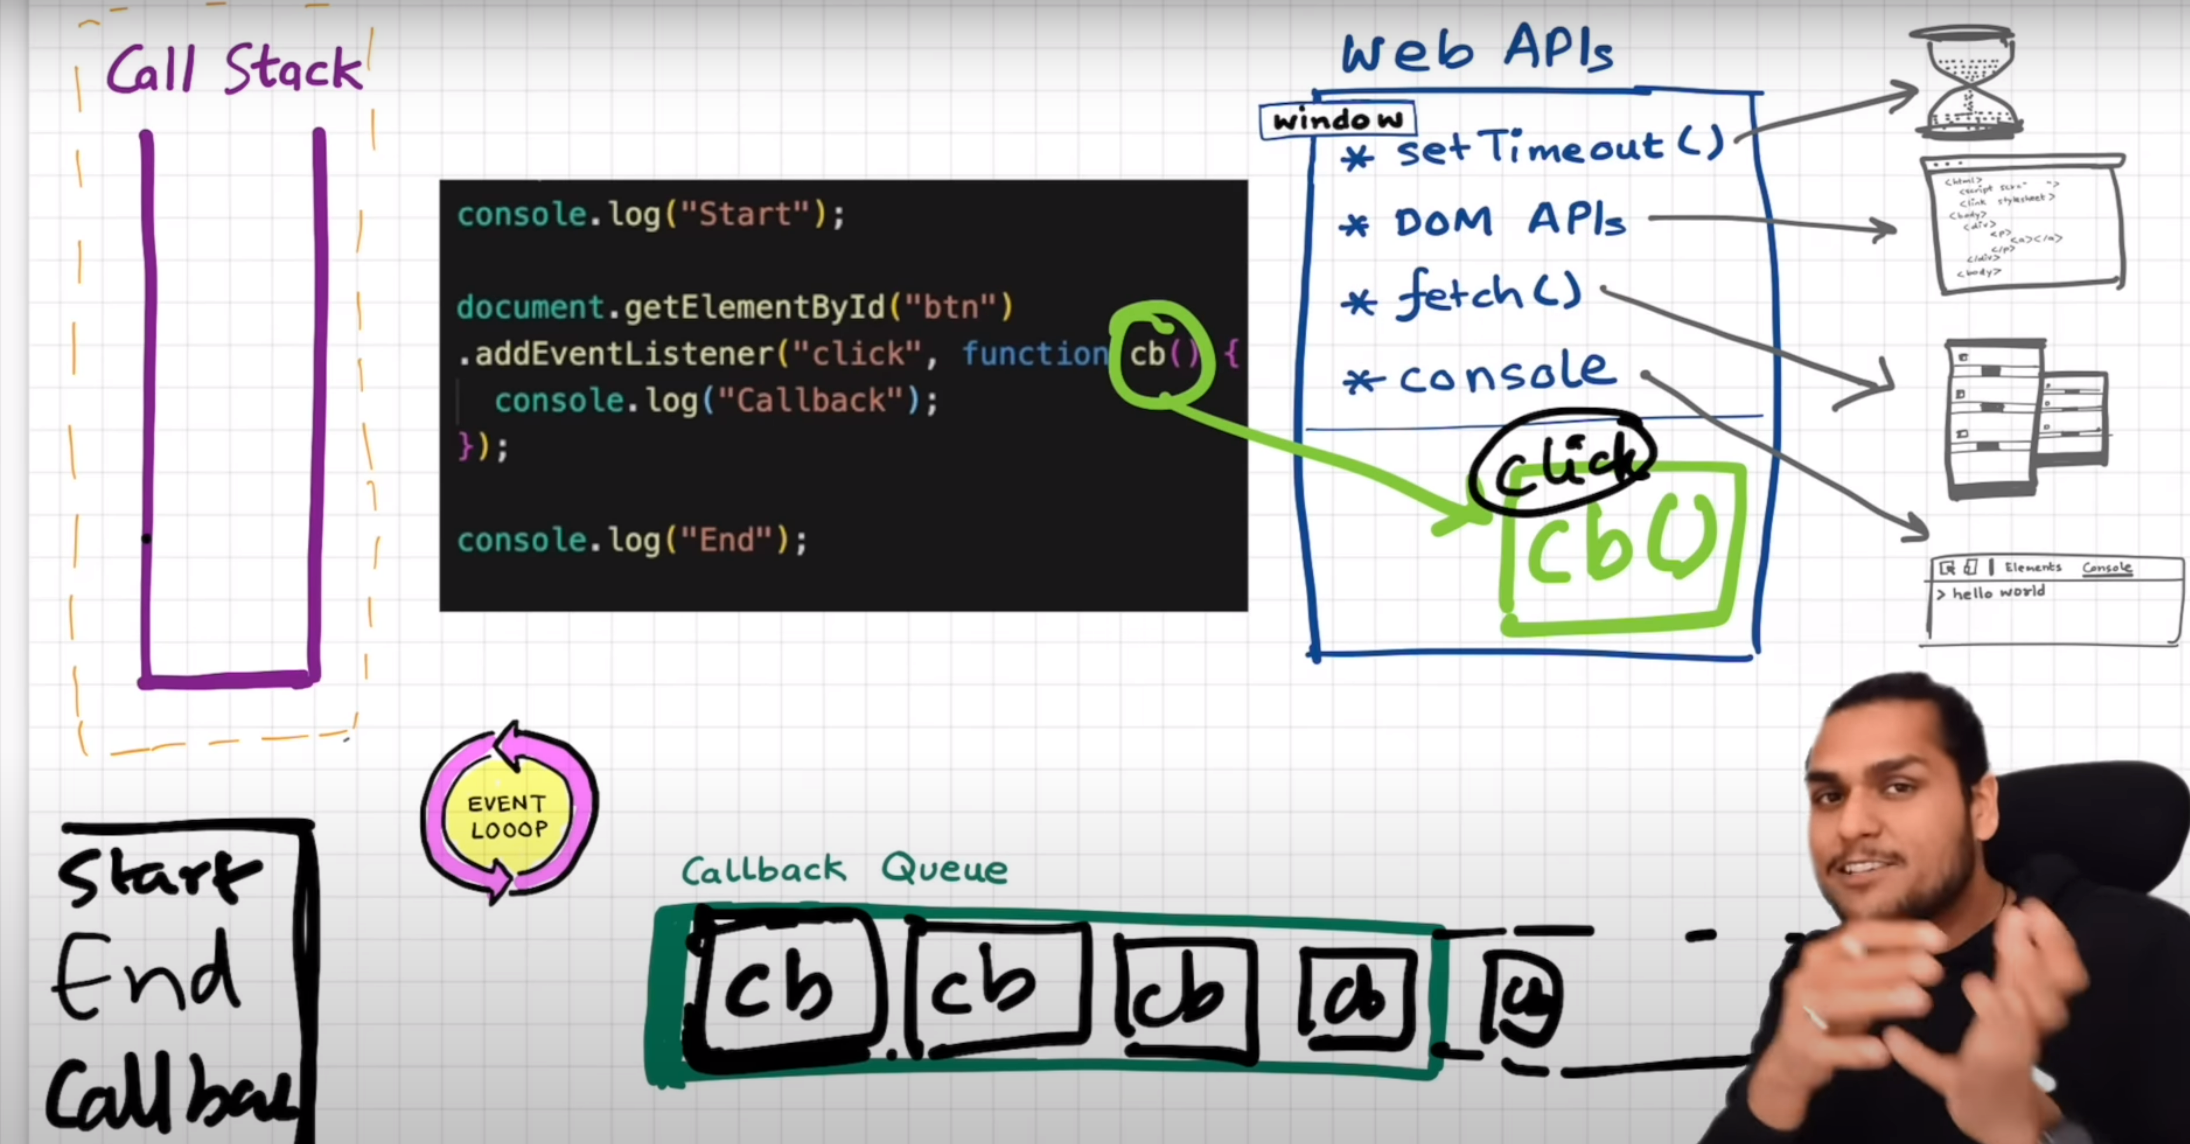 Call Stack
console.log("Start");
document.getElementById("btn")
.addEventListener("click", function cb() {
console.log("Callback");
});
console.log("End");
Web APIs
window
* setTimeout()
* DOM APIs
* fetch()
* console
click
cb()
<html>
<link stylesheet>
<body>
<div>
<p>
<a></a>
</p>
</div>
<body>
Elements Console
> hello world
EVENT
LOOOP
Start
End
Callbac
Callback Queue
cb cb cb cb